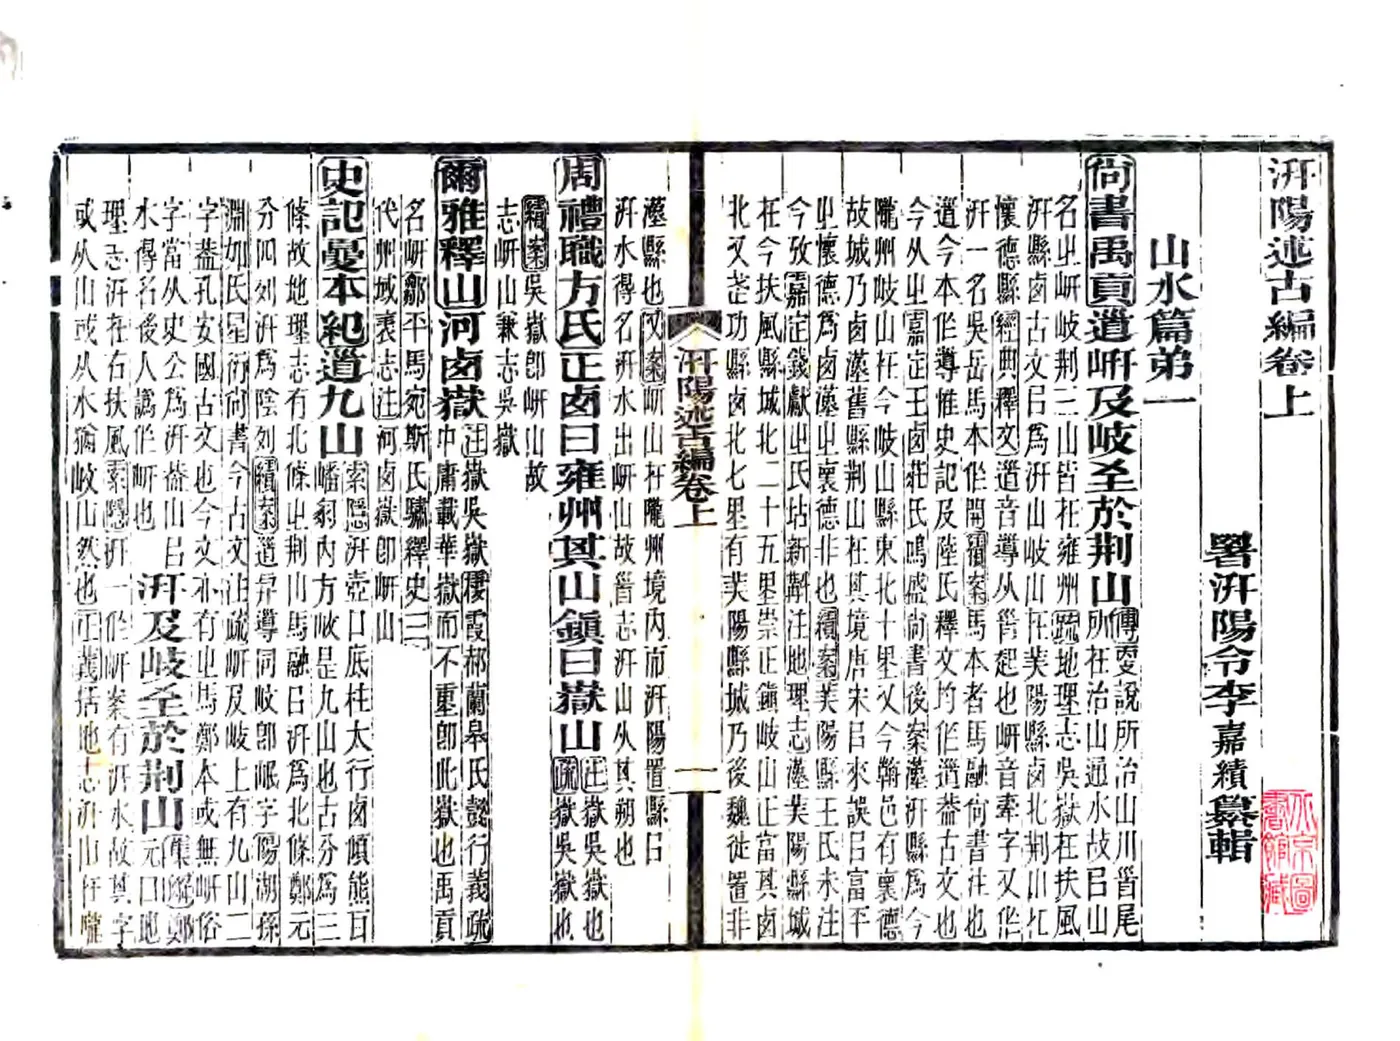 汧陽述古編卷上
署汧陽令李嘉績纂輯
山水篇弟一
尙書禹貢噵岍及岐至於荆山
傳更說所治山川首尾
所在治山通水故㠯山
名㞢岍岐荆三山皆在雍州疏地理志吳嶽在扶風
汧縣卤古文㠯爲汧山岐山在芙陽縣卤北荆山在
懷德縣經典釋文噵音導从首起也岍音牽字又作
汧一名吳岳馬本作開續案馬本者馬融尙書注也
噵今本作導惟史記及陸氏釋文均作噵葢古文也
今从㞢嘉定王卤莊氏鳴盛尙書後案漢汧縣爲今
隴州岐山在今岐山縣東北十里又今翰邑有褱德
故城乃卤漢舊縣荆山在其境唐宋㠯來誤㠯富平
㞢懷德爲卤漢㞢褱德非也續案芙陽縣王氏未注
今攷嘉定錢獻㞢氏坫新斠注地理志漢芙陽縣城
在今扶風縣城北二十五里崇正鎭岐山正富其卤
北又茬功縣卤北七里有芙陽縣城乃後魏徙置非
汧陽述古編卷上
一
漢縣也又案岍山在隴州境內而汧陽置縣㠯
汧水得名汧水出岍山故舊志汧山从其朔也
周禮職方氏正卤曰雍州其山鎭曰嶽山
注嶽吳嶽也
疏嶽吳嶽也
續案吳嶽卽岍山故
志岍山兼志吳嶽
爾雅釋山河卤嶽
注嶽吳嶽棲霞郝蘭皋氏懿行義疏
中庸載華嶽而不重卽此嶽也禹貢
名岍鄒平馬宛斯氏驌繹史三
代州域表志注河卤嶽卽岍山
史記夏本紀噵九山
索隱汧壺口底柱太行卤傾熊耳
嶓豖內方岐是九山也古分爲三
條故地理志有北條㞢荆山馬融㠯汧爲北條鄭元
分四列汧爲陰列續案噵昇導同岐卽岷字陽湖孫
淵如氏星衍尙書今古文注疏岍及岐上有九山二
字葢孔安國古文也今文亦有㞢馬鄭本或無岍俗
字當从史公爲汧葢山㠯
水得名後人譌作岍也
汧及岐至於荆山
集解鄭
元曰地
理志汧在右扶風索隱汧一作岍案有汧水故其字
或从山或从水猶岐山然也正義括地志汧山在隴
京圖書館藏